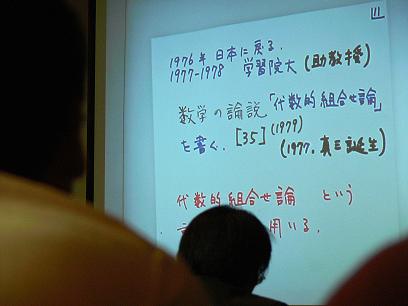 1976年 日本に戻る.
1977-1978 学習院大 (助教授)
数学の論説「代数的組合せ論」
を書く. [35] (1979)
(1977. 真三誕生)
代数的組合せ論 という
用いる.